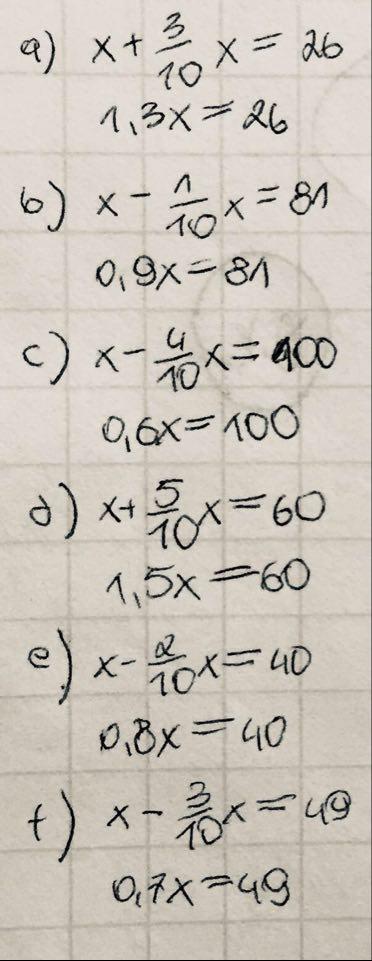 a) x + 3/10 x = 26
1,3x = 26
b) x - 1/10 x = 81
0,9x = 81
c) x - 4/10 x = 100
0,6x = 100
d) x + 5/10 x = 60
1,5x = 60
e) x - 2/10 x = 40
0,8x = 40
f) x - 3/10 x = 49
0,7x = 49